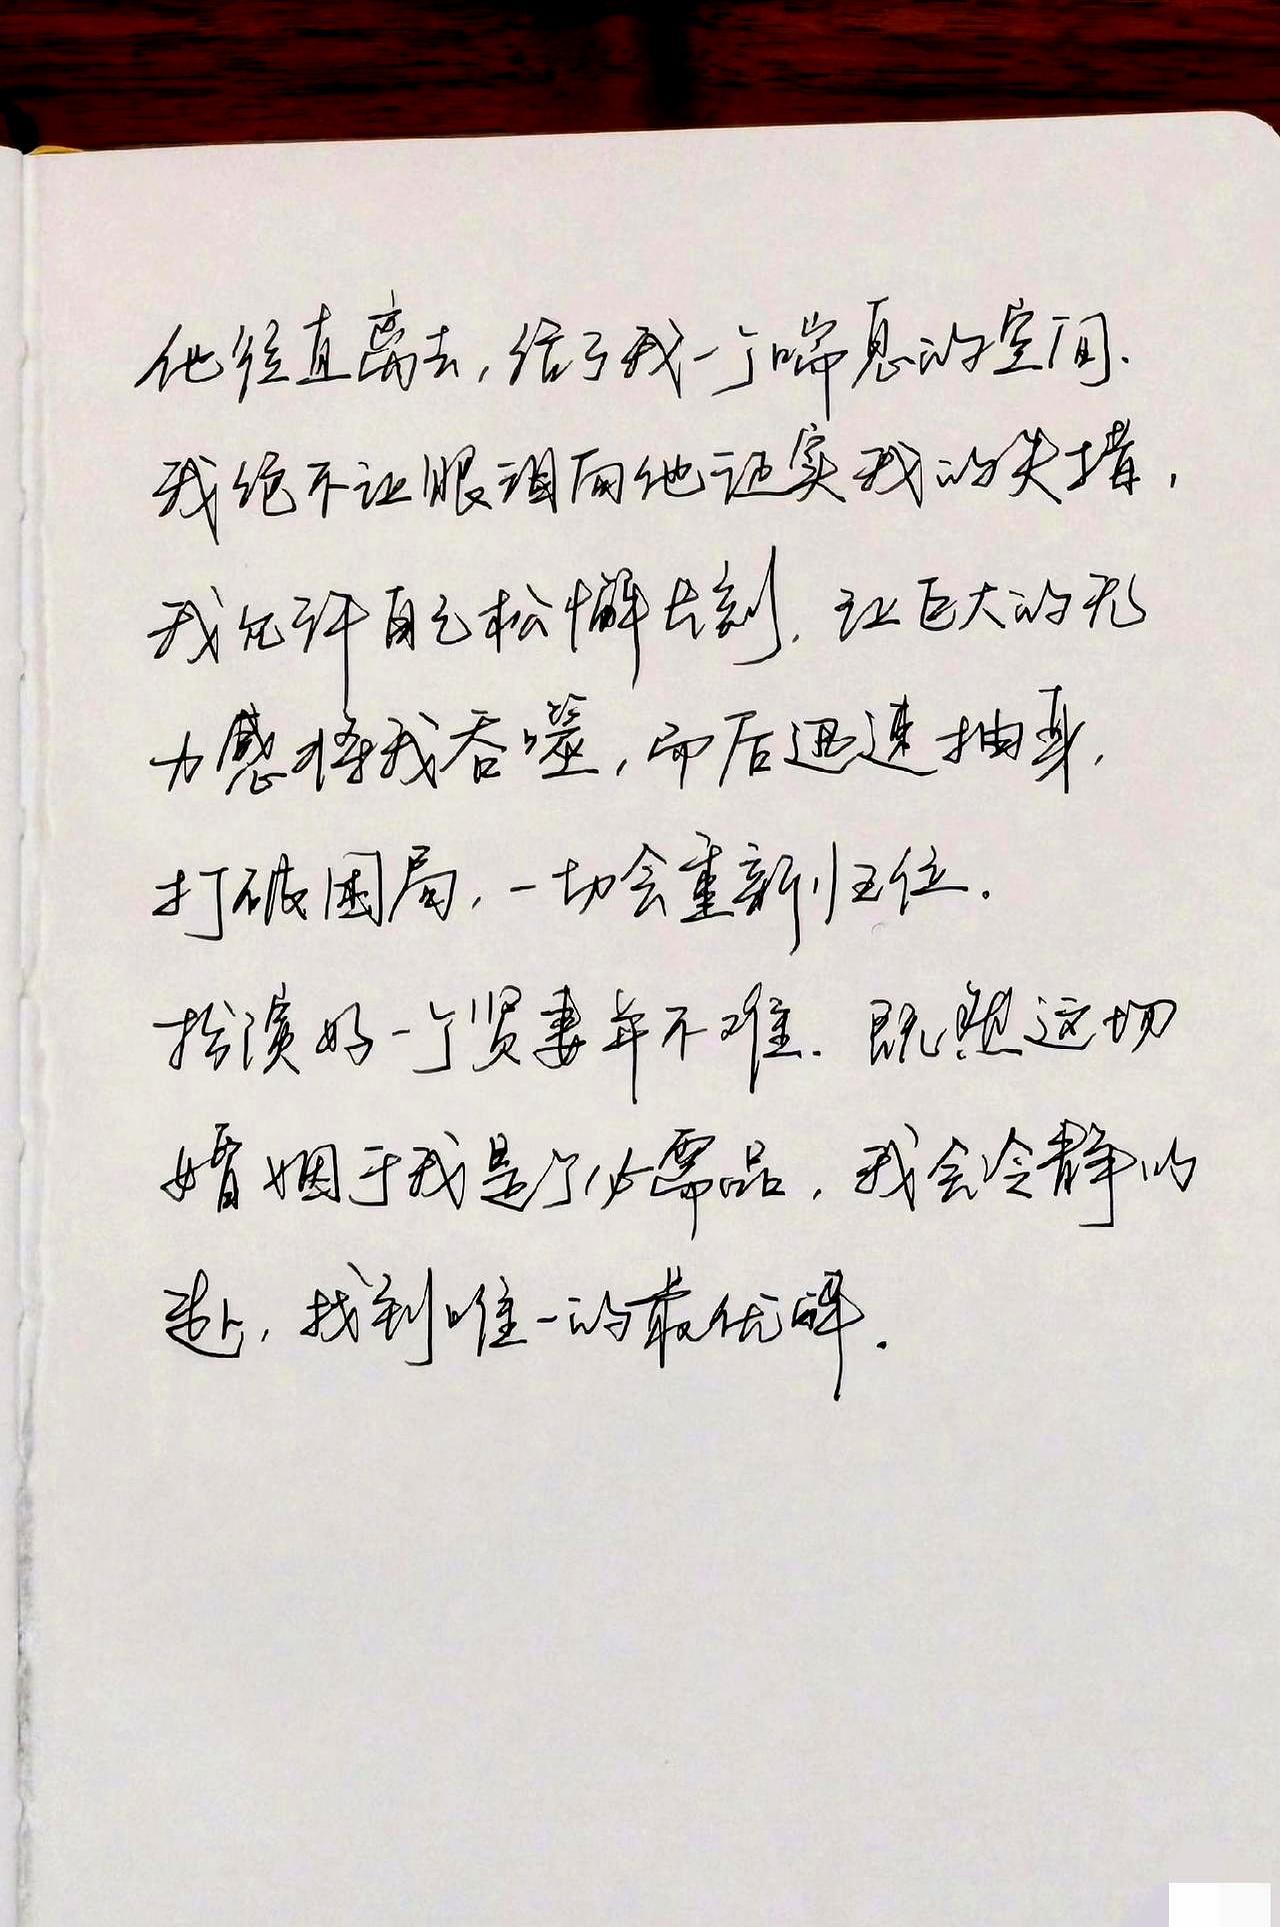 他径直离去,给了我一个喘息的空间.
我绝不让眼泪向他证实我的失措,
我允许自己松懈片刻,让巨大的无
力感将我吞噬,而后迅速抽身,
打破困局,一切会重新归位.
扮演好一个贤妻并不难.既然这场
婚姻于我是个必需品,我会冷静的
赴,找到唯一的最优解.